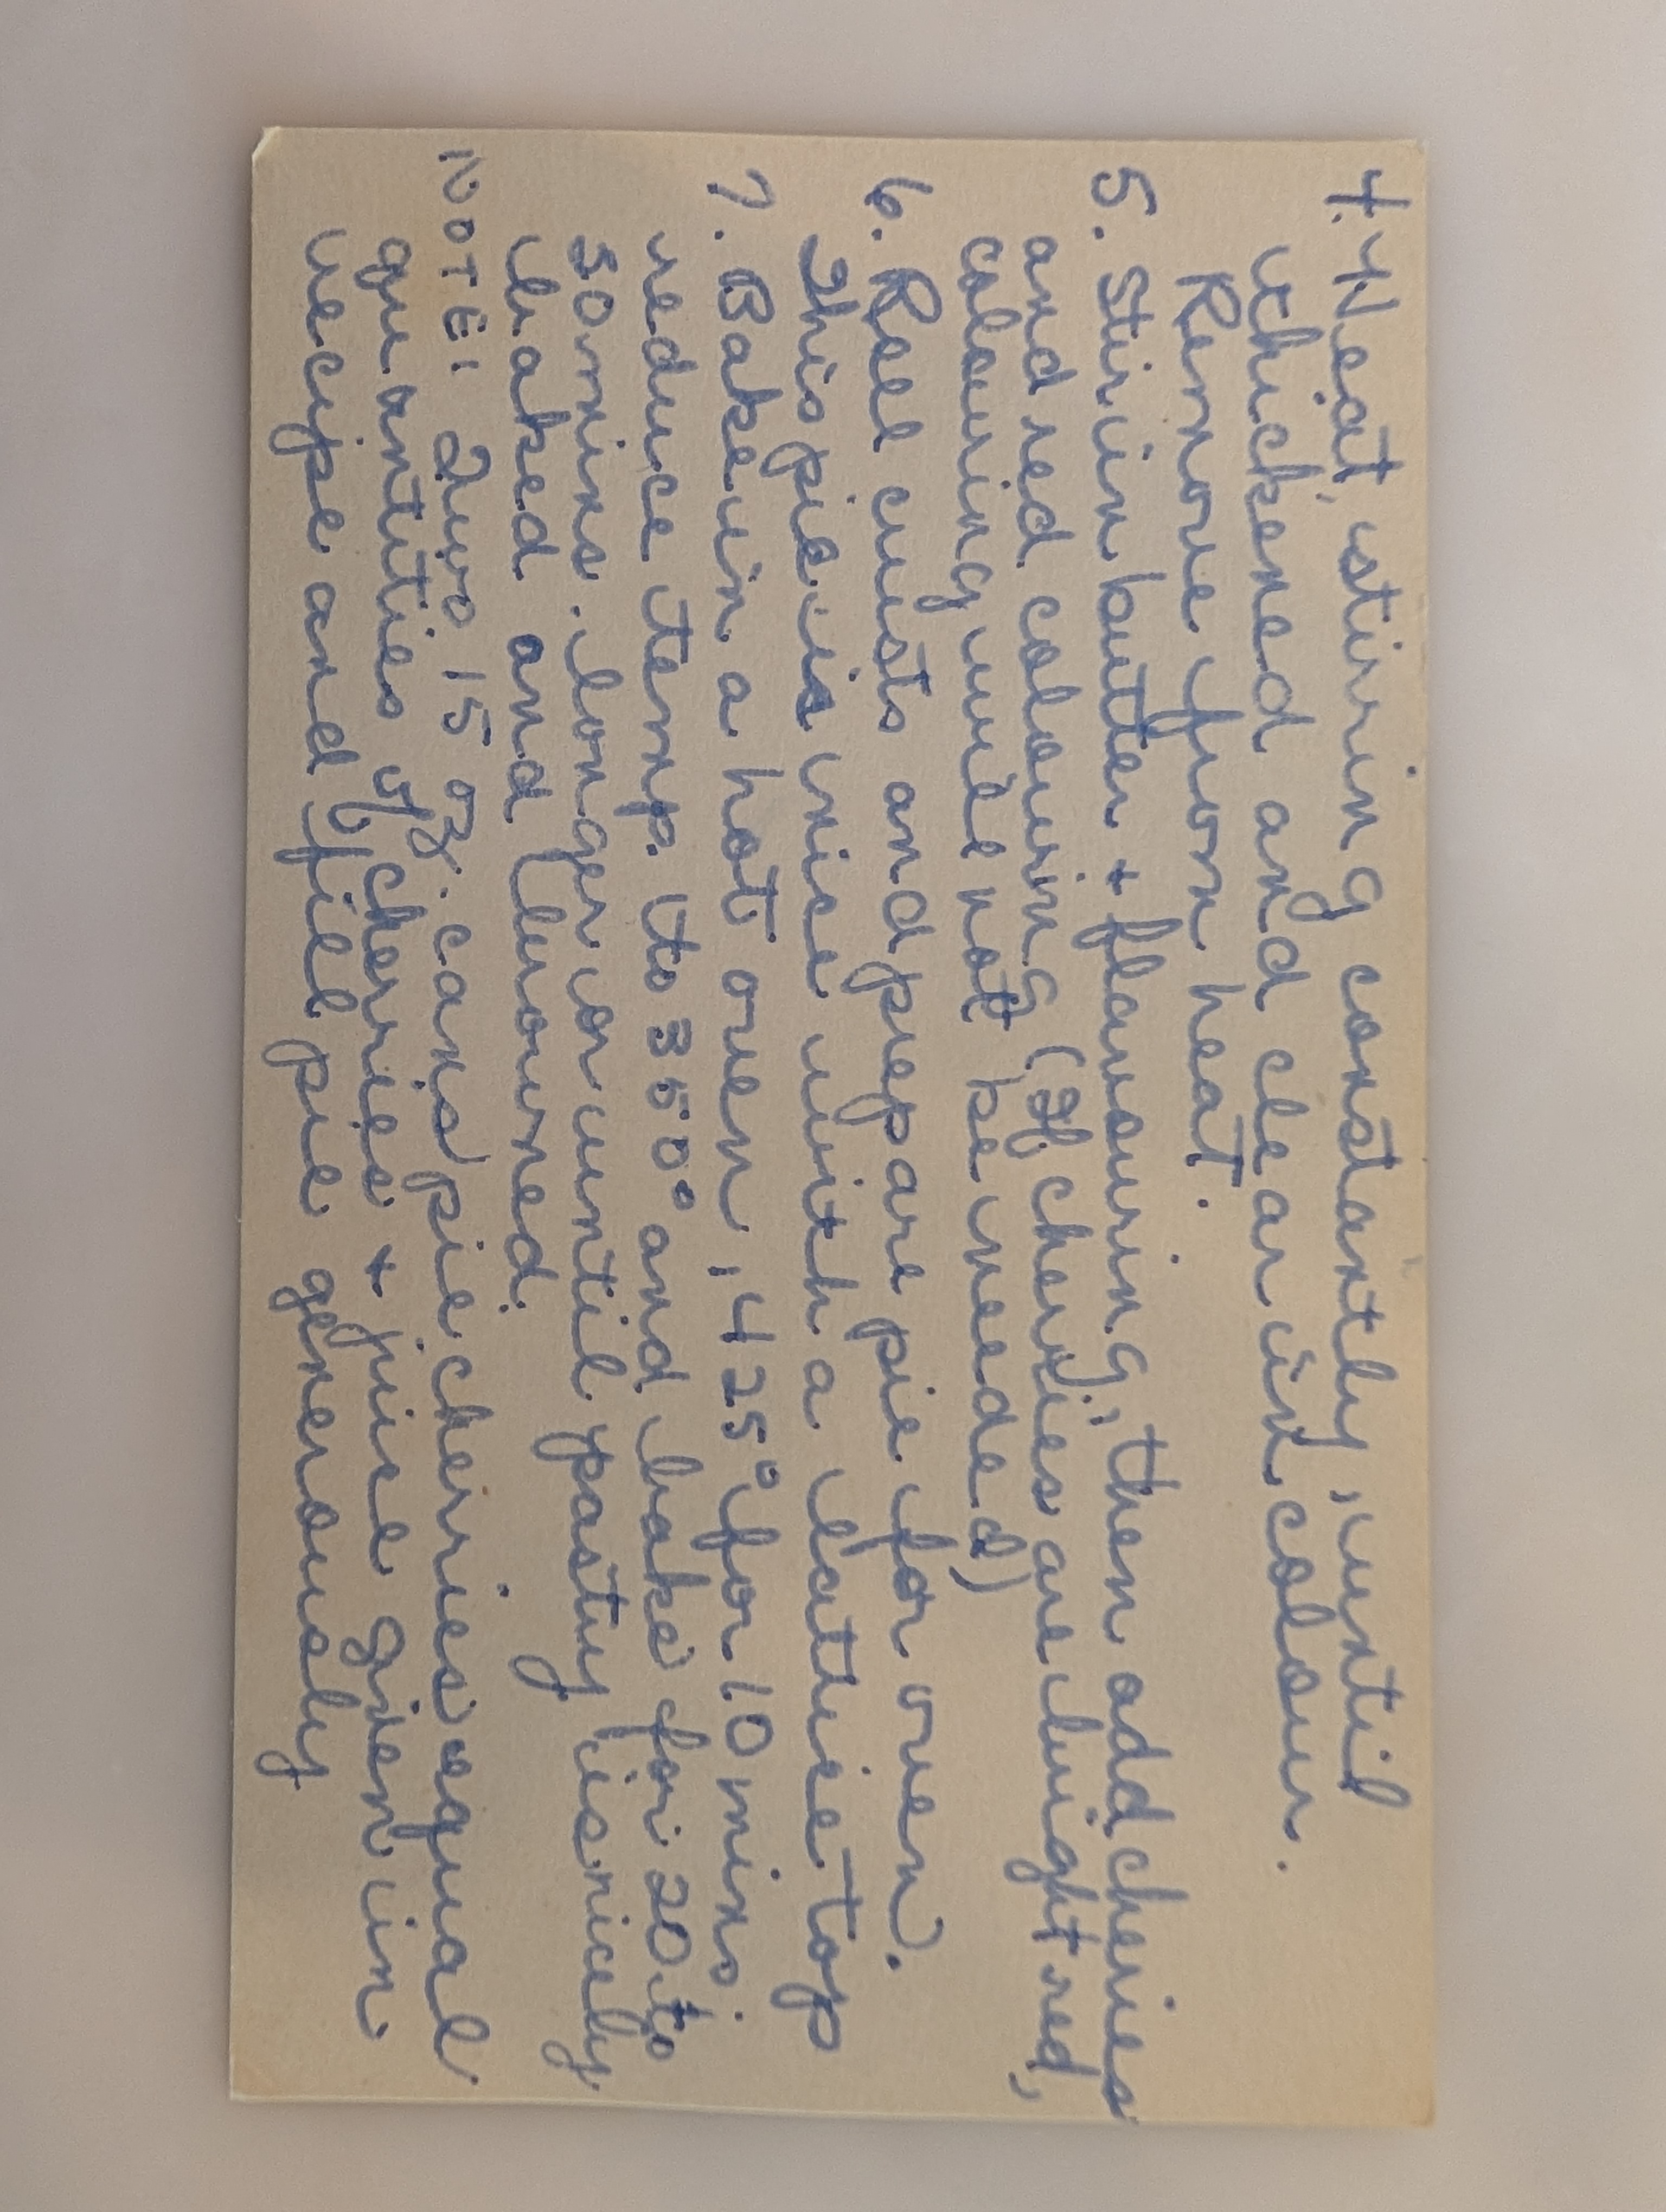 4. Heat, stirring constantly, until
thickened and clear in colour.
Remove from heat.
5. Stir in butter + flavouring, then add cherries
and red colouring (If cherries are bright red,
colouring will not be needed)
6. Roll crusts and prepare pie for oven.
This pie is nice with a lattice top
7. Bake in a hot oven, 425° for 10 mins.
reduce temp. to 350° and bake for 20 to
30 mins. longer or until pastry is nicely
baked and browned.
NOTE: Two 15 oz. cans pie cherries equal
quantities of cherries + juice given in
recipe and fill pie generously